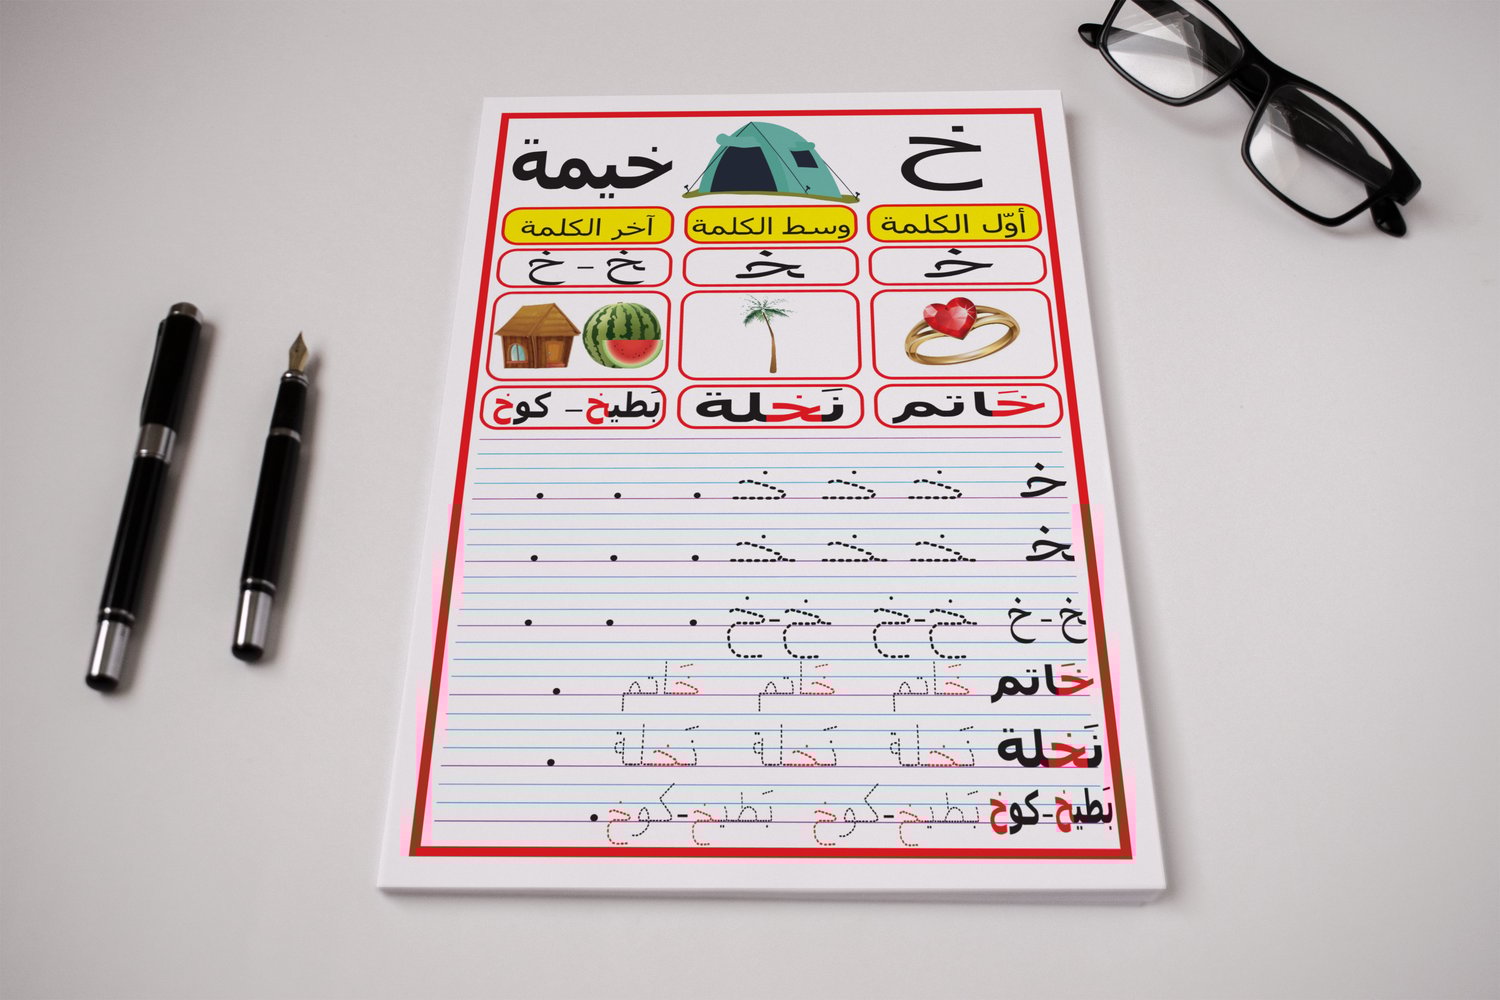 خ خيمة
أوّل الكلمة وسط الكلمة آخر الكلمة
خـ ـخـ ـخ - خ
خَاتم نَخلة بَطيخ - كوخ
خـ خـ خـ خـ . . .
ـخـ ـخـ ـخـ ـخـ . . .
ـخ - خ ـخ - خ ـخ - خ . . .
خَاتم خَاتم خَاتم خَاتم .
نَخلة نَخلة نَخلة نَخلة .
بَطيخ-كوخ بَطيخ-كوخ بَطيخ-كوخ .